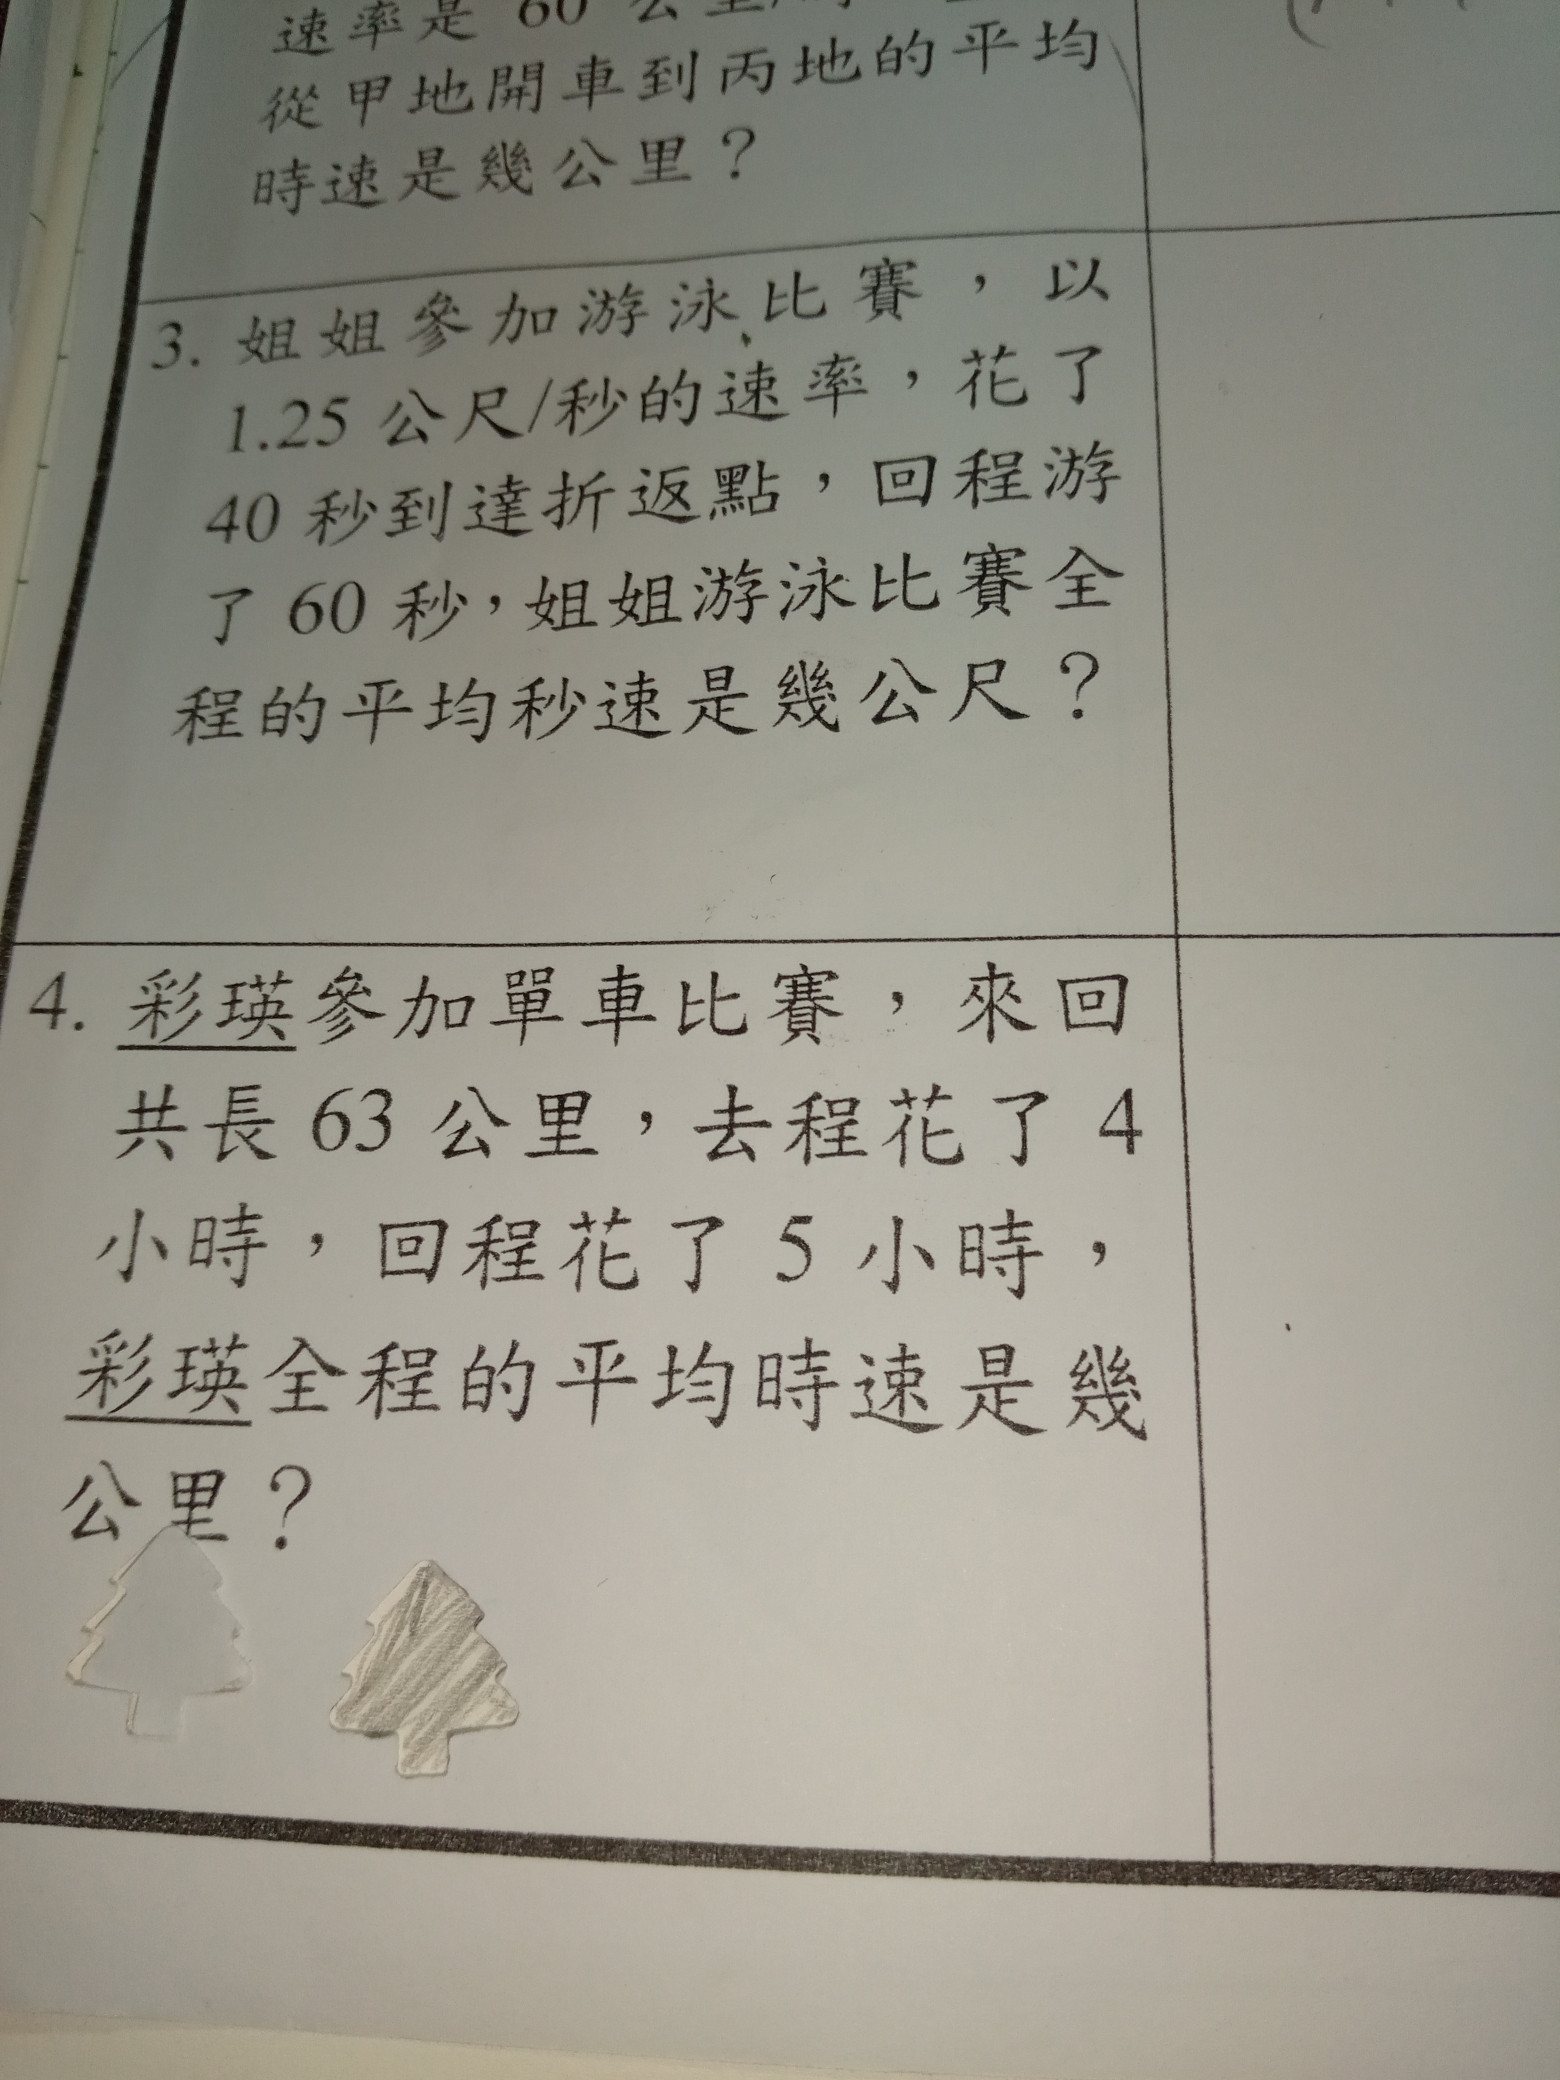 速率是 60 公里/時
從甲地開車到丙地的平均
時速是幾公里？
3. 姐姐參加游泳比賽，以
1.25 公尺/秒的速率，花了
40 秒到達折返點，回程游
了 60 秒，姐姐游泳比賽全
程的平均秒速是幾公尺？
4. 彩瑛參加單車比賽，來回
共長 63 公里，去程花了 4
小時，回程花了 5 小時，
彩瑛全程的平均時速是幾
公里？